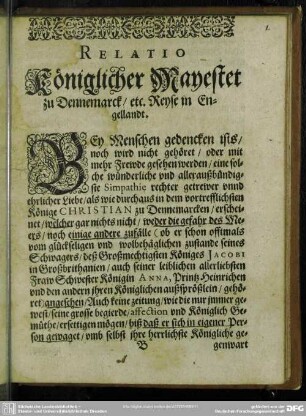 1.
RELATIO
Königlicher Mayestet
zu Dennemarck / etc. Reyse in En-
gellandt.
BEy Menschen gedencken ists /
noch wird nicht gehöret / oder mit
mehr Frewde gesehen werden / eine sol-
che wünderliche vnd alleraußbündig-
ste Simpathie rechter getrewer vnnd
ehrlicher Liebe / als wie durchaus in dem vortrefflichsten
Könige CHRISTIAN zu Dennemarcken / erschei-
net / welcher gar nichts nicht / weder die gefahr des Mee-
rs / noch einige andere zufälle / ob er schon offtmals
vom glückseligen vnd wolbehäglichen zustande seines
Schwagers / deß Großmechtigsten Königes JACOBI
in Großbrithanien / auch seiner leiblichen allerliebsten
Fraw Schwester Königin ANNA, Printz Heinrichen
vnd den andern ihren Königlichen außsprößlein / gehö-
ret / angesehen / Auch keine zeitung / wie die nur immer ge-
west / seine grosse begierde / affection vnd Königlich Ge-
müthe / ersettigen mögen / biß daß er sich in eigener Per-
son gewaget / vmb selbst ihre herrlichste Königliche ge-
B genwart